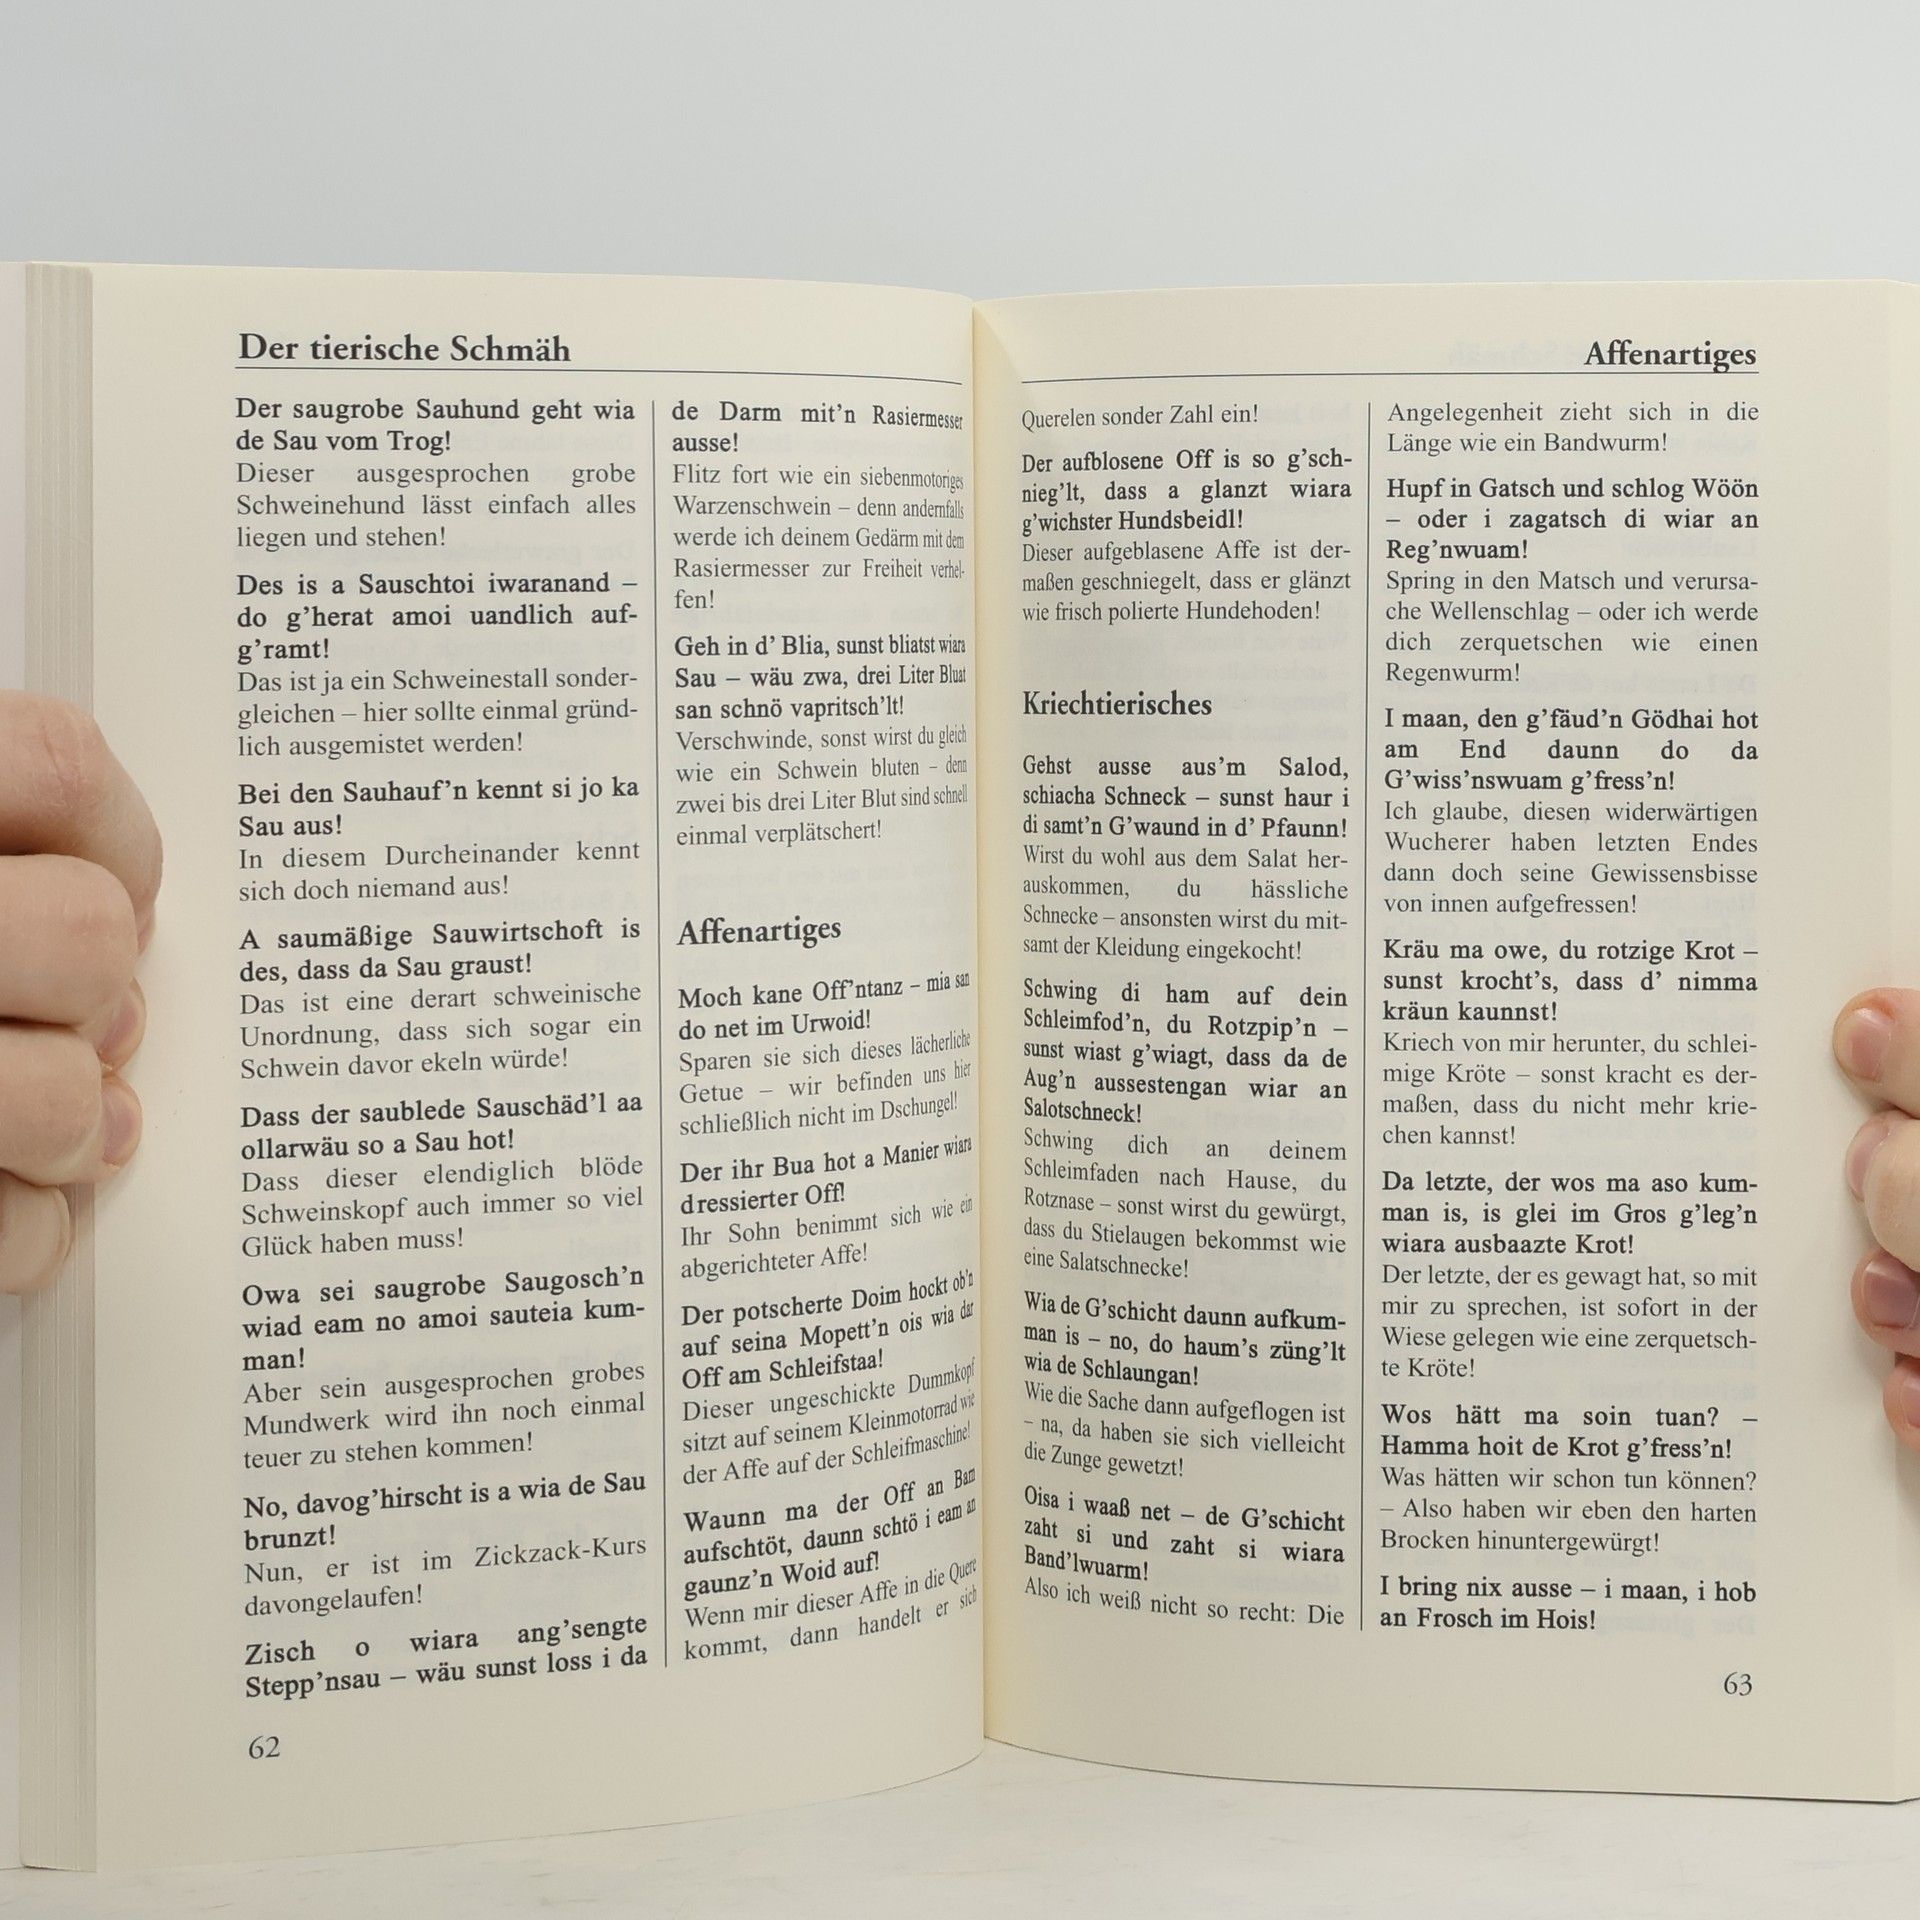 Der tierische Schmäh
Der saugrobe Sauhund geht wia
de Sau vom Trog!
Dieser ausgesprochen grobe
Schweinehund lässt einfach alles
liegen und stehen!
Des is a Sauschtoi iwaranand –
do g’herat amoi uandlich auf-
g’ramt!
Das ist ja ein Schweinestall sonder-
gleichen – hier sollte einmal gründ-
lich ausgemistet werden!
Bei den Sauhauf’n kennt si jo ka
Sau aus!
In diesem Durcheinander kennt
sich doch niemand aus!
A saumäßige Sauwirtschoft is
des, dass da Sau graust!
Das ist eine derart schweinische
Unordnung, dass sich sogar ein
Schwein davor ekeln würde!
Dass der saublede Sauschäd’l aa
ollarwäu so a Sau hot!
Dass dieser elendiglich blöde
Schweinskopf auch immer so viel
Glück haben muss!
Owa sei saugrobe Saugosch’n
wiad eam no amoi sauteia kum-
man!
Aber sein ausgesprochen grobes
Mundwerk wird ihn noch einmal
teuer zu stehen kommen!
No, davog’hirscht is a wia de Sau
brunzt!
Nun, er ist im Zickzack-Kurs
davongelaufen!
Zisch o wiara ang’sengte
Stepp’nsau – wäu sunst loss i da
de Darm mit’n Rasiermesser
ausse!
Flitz fort wie ein siebenmotoriges
Warzenschwein – denn andernfalls
werde ich deinem Gedärm mit dem
Rasiermesser zur Freiheit verhel-
fen!
Geh in d’ Blia, sunst bliatst wiara
Sau – wäu zwa, drei Liter Bluat
san schnö vapritsch’lt!
Verschwinde, sonst wirst du gleich
wie ein Schwein bluten – denn
zwei bis drei Liter Blut sind schnell
einmal verplätschert!
Affenartiges
Moch kane Off’ntanz – mia san
do net im Urwoid!
Sparen sie sich dieses lächerliche
Getue – wir befinden uns hier
schließlich nicht im Dschungel!
Der ihr Bua hot a Manier wiara
dressierter Off!
Ihr Sohn benimmt sich wie ein
abgerichteter Affe!
Der potscherte Doim hockt ob’n
auf seina Mopett’n ois wia dar
Off am Schleifstaa!
Dieser ungeschickte Dummkopf
sitzt auf seinem Kleinmotorrad wie
der Affe auf der Schleifmaschine!
Waunn ma der Off an Bam
aufschtöt, daunn schtö i eam an
gaunz’n Woid auf!
Wenn mir dieser Affe in die Quere
kommt, dann handelt er sich
62
Affenartiges
Querelen sonder Zahl ein!
Der aufblosene Off is so g’sch-
nieg’lt, dass a glanzt wiara
g’wichster Hundsbeidl!
Dieser aufgeblasene Affe ist der-
maßen geschniegelt, dass er glänzt
wie frisch polierte Hundehoden!
Kriechtierisches
Gehst ausse aus’m Salod,
schiacha Schneck – sunst haur i
di samt’n G’waund in d’ Pfaunn!
Wirst du wohl aus dem Salat her-
auskommen, du hässliche
Schnecke – ansonsten wirst du mit-
samt der Kleidung eingekocht!
Schwing di ham auf dein
Schleimfod’n, du Rotzpip’n –
sunst wiast g’wiagt, dass da de
Aug’n aussestengan wiar an
Salotschneck!
Schwing dich an deinem
Schleimfaden nach Hause, du
Rotznase – sonst wirst du gewürgt,
dass du Stielaugen bekommst wie
eine Salatschnecke!
Wia de G’schicht daunn aufkum-
man is – no, do haum’s züng’lt
wia de Schlaungan!
Wie die Sache dann aufgeflogen ist
– na, da haben sie sich vielleicht
die Zunge gewetzt!
Oisa i waaß net – de G’schicht
zaht si und zaht si wiara
Band’lwuarm!
Also ich weiß nicht so recht: Die
Angelegenheit zieht sich in die
Länge wie ein Bandwurm!
Hupf in Gatsch und schlog Wöön
– oder i zagatsch di wiar an
Reg’nwuam!
Spring in den Matsch und verursa-
che Wellenschlag – oder ich werde
dich zerquetschen wie einen
Regenwurm!
I maan, den g’fäud’n Gödhai hot
am End daunn do da
G’wiss’nswuam g’fress’n!
Ich glaube, diesen widerwärtigen
Wucherer haben letzten Endes
dann doch seine Gewissensbisse
von innen aufgefressen!
Kräu ma owe, du rotzige Krot –
sunst krocht’s, dass d’ nimma
kräun kaunnst!
Kriech von mir herunter, du schlei-
mige Kröte – sonst kracht es der-
maßen, dass du nicht mehr krie-
chen kannst!
Da letzte, der wos ma aso kum-
man is, is glei im Gros g’leg’n
wiara ausbaazte Krot!
Der letzte, der es gewagt hat, so mit
mir zu sprechen, ist sofort in der
Wiese gelegen wie eine zerquetsch-
te Kröte!
Wos hätt ma soin tuan? –
Hamma hoit de Krot g’fress’n!
Was hätten wir schon tun können?
– Also haben wir eben den harten
Brocken hinuntergewürgt!
I bring nix ausse – i maan, i hob
an Frosch im Hois!
63